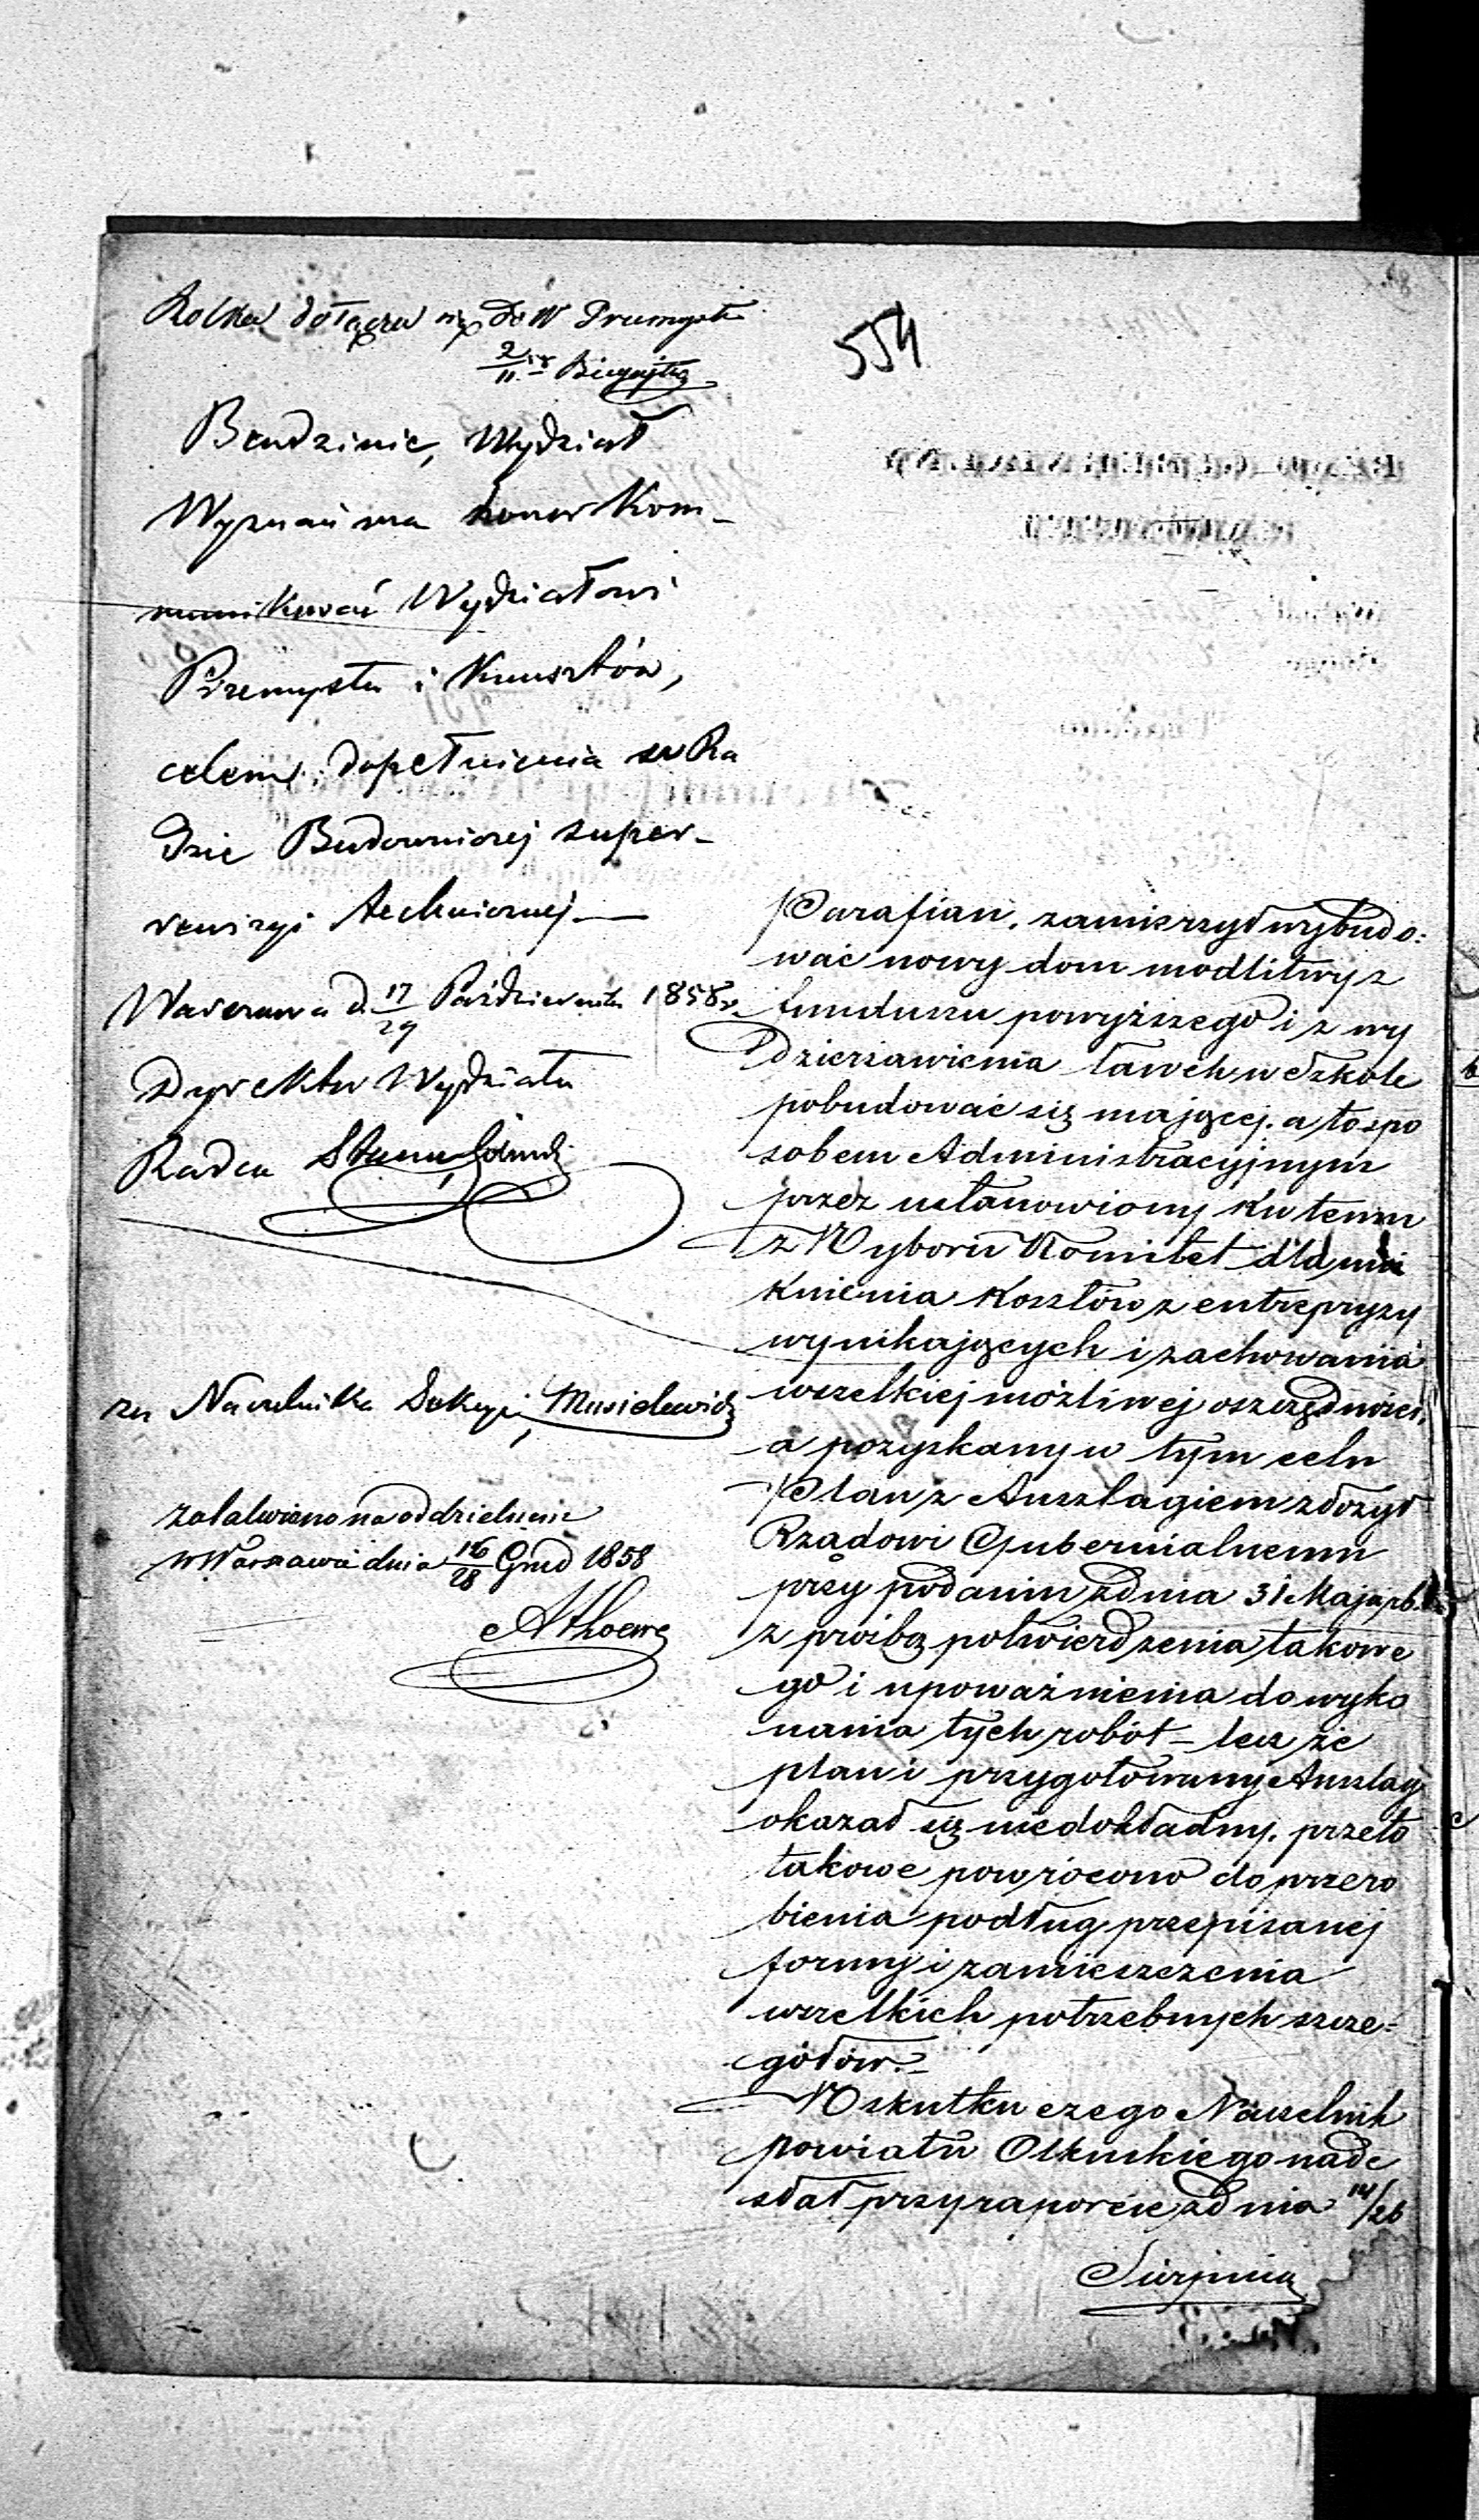 Rolka dołącza się do W Przemysłu
2/11
554
Bendzinie, Wydział
Wyznań ma honor Kom-
munikować Wydziałowi
Przemysłu i Kunsztów,
celem dopełnienia w Ra
dzie Budowniczej super-
rewizyi technicznej.—
Warszawa d. 17/29 Października 1858 r.
Dyrektor Wydziału
Radca
za Naczelnika Sekcyi, Musielewicz
załatwiono na oddzielnie
w Warszawie dnia 16/28 Grud 1858
Parafian, zamierzył wybudo:
wać nowy dom modlitwy z
funduszu powyższego i z wy
dzierżawienia ławek w Szkole
pobudować się mającej, a to spo
sobem Administracyjnym
przez ustanowiony ku temu
z Wyboru Komitet dla uni
knienia kosztów z entrepryzy
wynikających i zachowania
wszelkiej możliwej oszczędności,
a pozyskany w tym celu
Plan z Anszlagiem złożył
Rządowi Gubernialnemu
przy podaniu z dnia 31 Maja rb.
z prośbą potwierdzenia takowe
go i upoważnienia do wyko
nania tych robót – lecz że
plan i przygotowany Anszlag
okazał się niedokładny, przeto
takowe powrócono do przero
bienia podług przepisanej
formy i zamieszczenia
wszelkich potrzebnych szcze-
gółów.–
W skutku czego Naczelnik
powiatu Olkuskiego nade
słał przy raporcie z dnia 14/26
Sierpnia